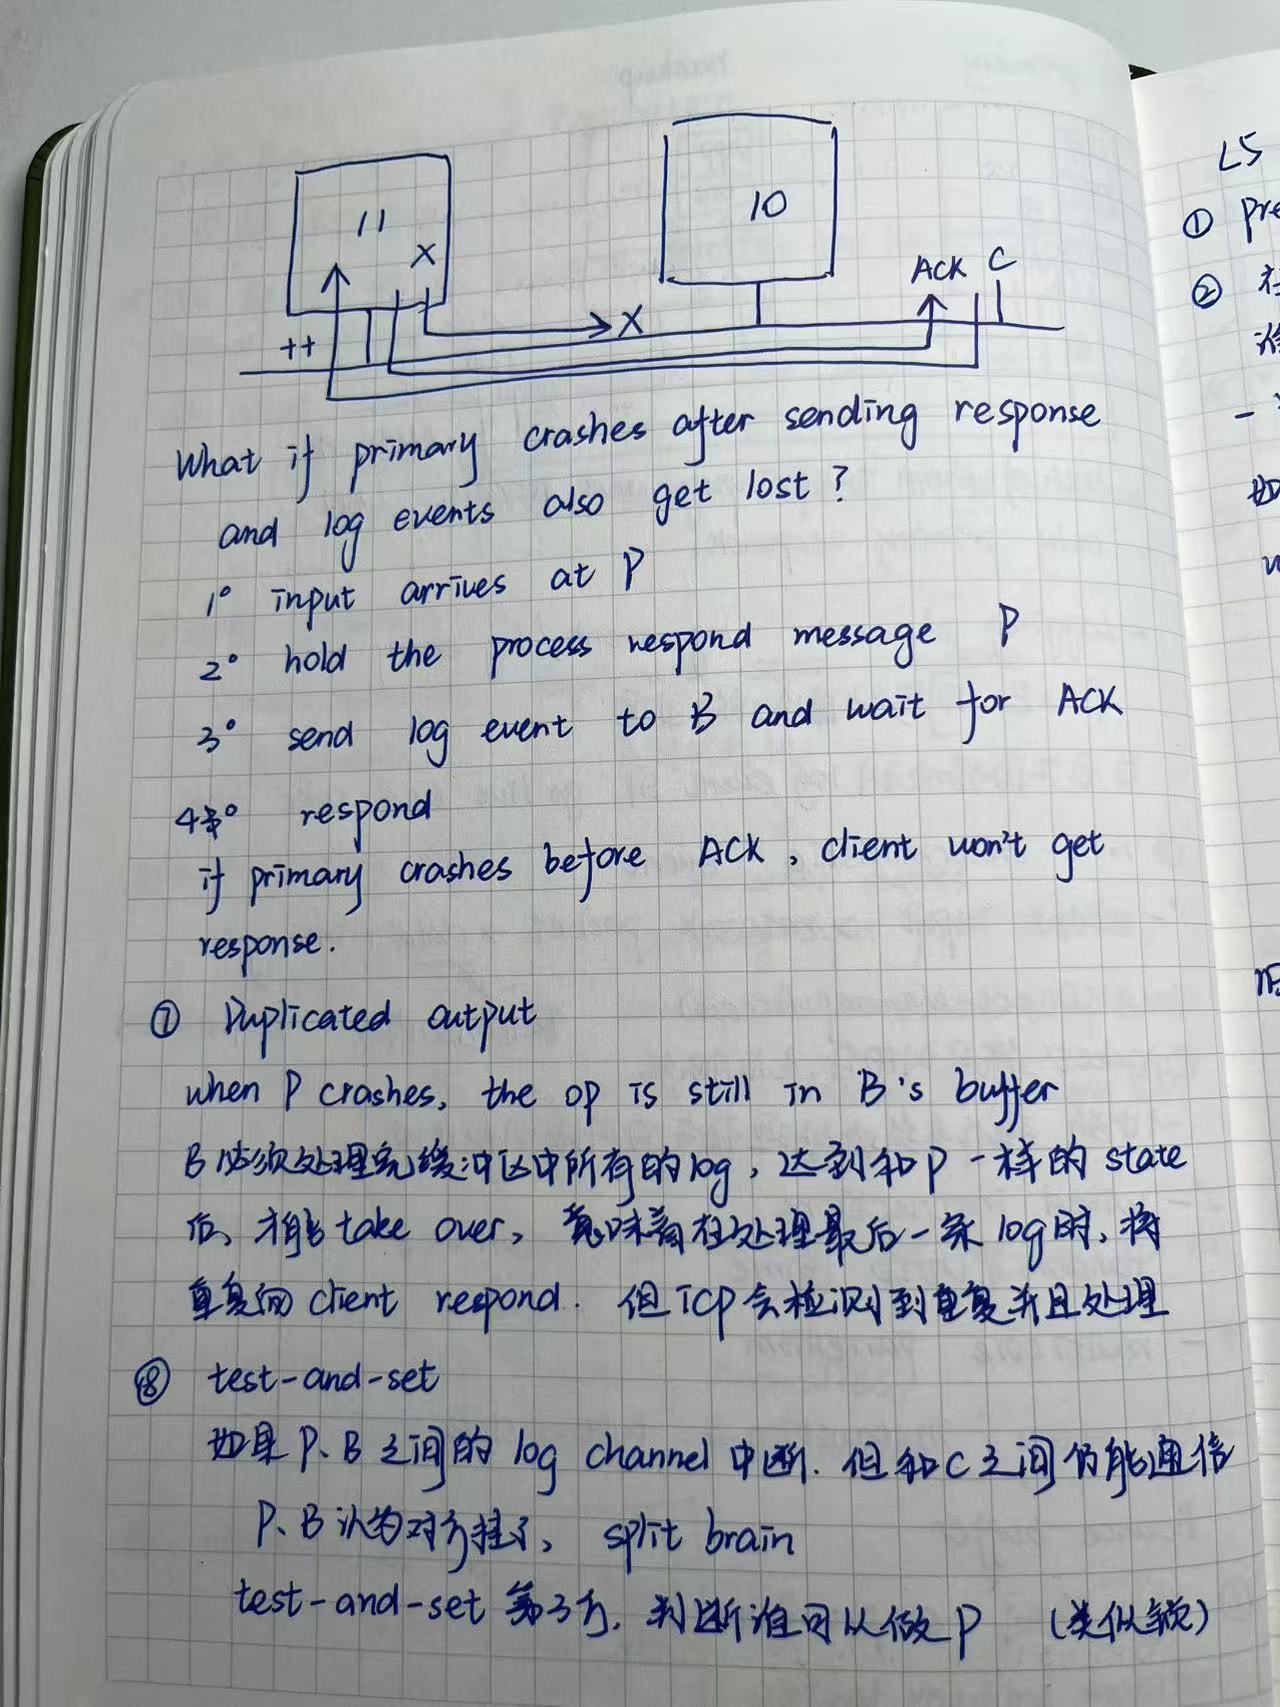 11
10
X
ACK C
++
X
What if primary crashes after sending response
and log events also get lost?
1° input arrives at P
2° hold the process respond message P
3° send log event to B and wait for ACK
4° respond
if primary crashes before ACK, client won't get
response.
⑦ Duplicated output
when P crashes, the op is still in B's buffer
B必须处理完缓冲区中所有的log，达到和P一样的state
后、才能take over，意味着在处理最后一条log时，将
重复向client respond. 但TCP会检测到重复并且处理
⑧ test-and-set
如果P、B之间的log channel中断. 但和C之间仍能通信
P、B认为对方挂了、split brain
test-and-set 第3方，判断谁可以做P (类似锁)
L5
① pre
②